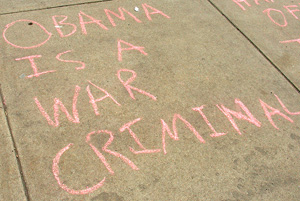 OBAMA
IS A
WAR
CRIMINAL